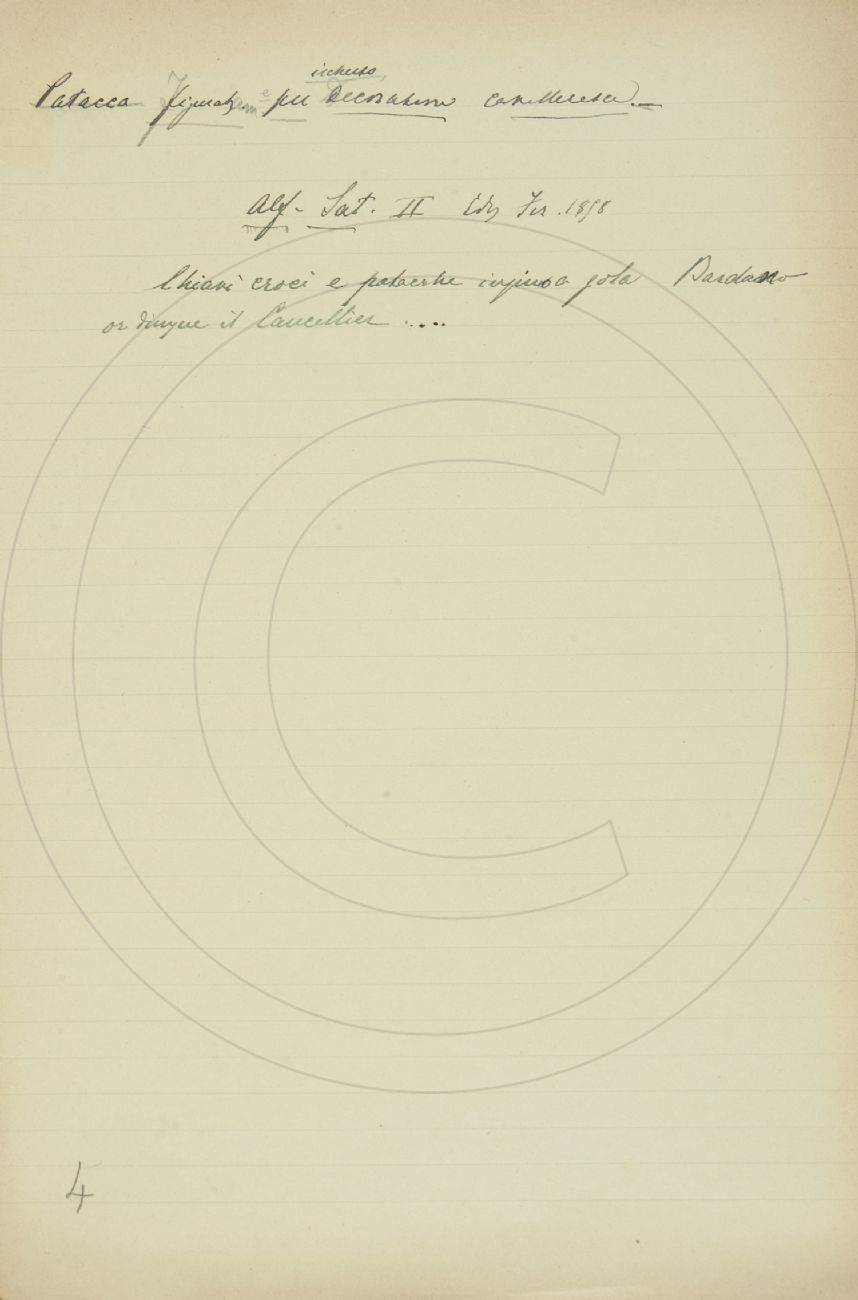 Patacca figurat. e per Decorazione cavalleresca. —
Alf. Sat. II Ediz Fir. 1858
Chiavi croci e patacche infino a gola Bardano
or dunque il Cancellier .....
4